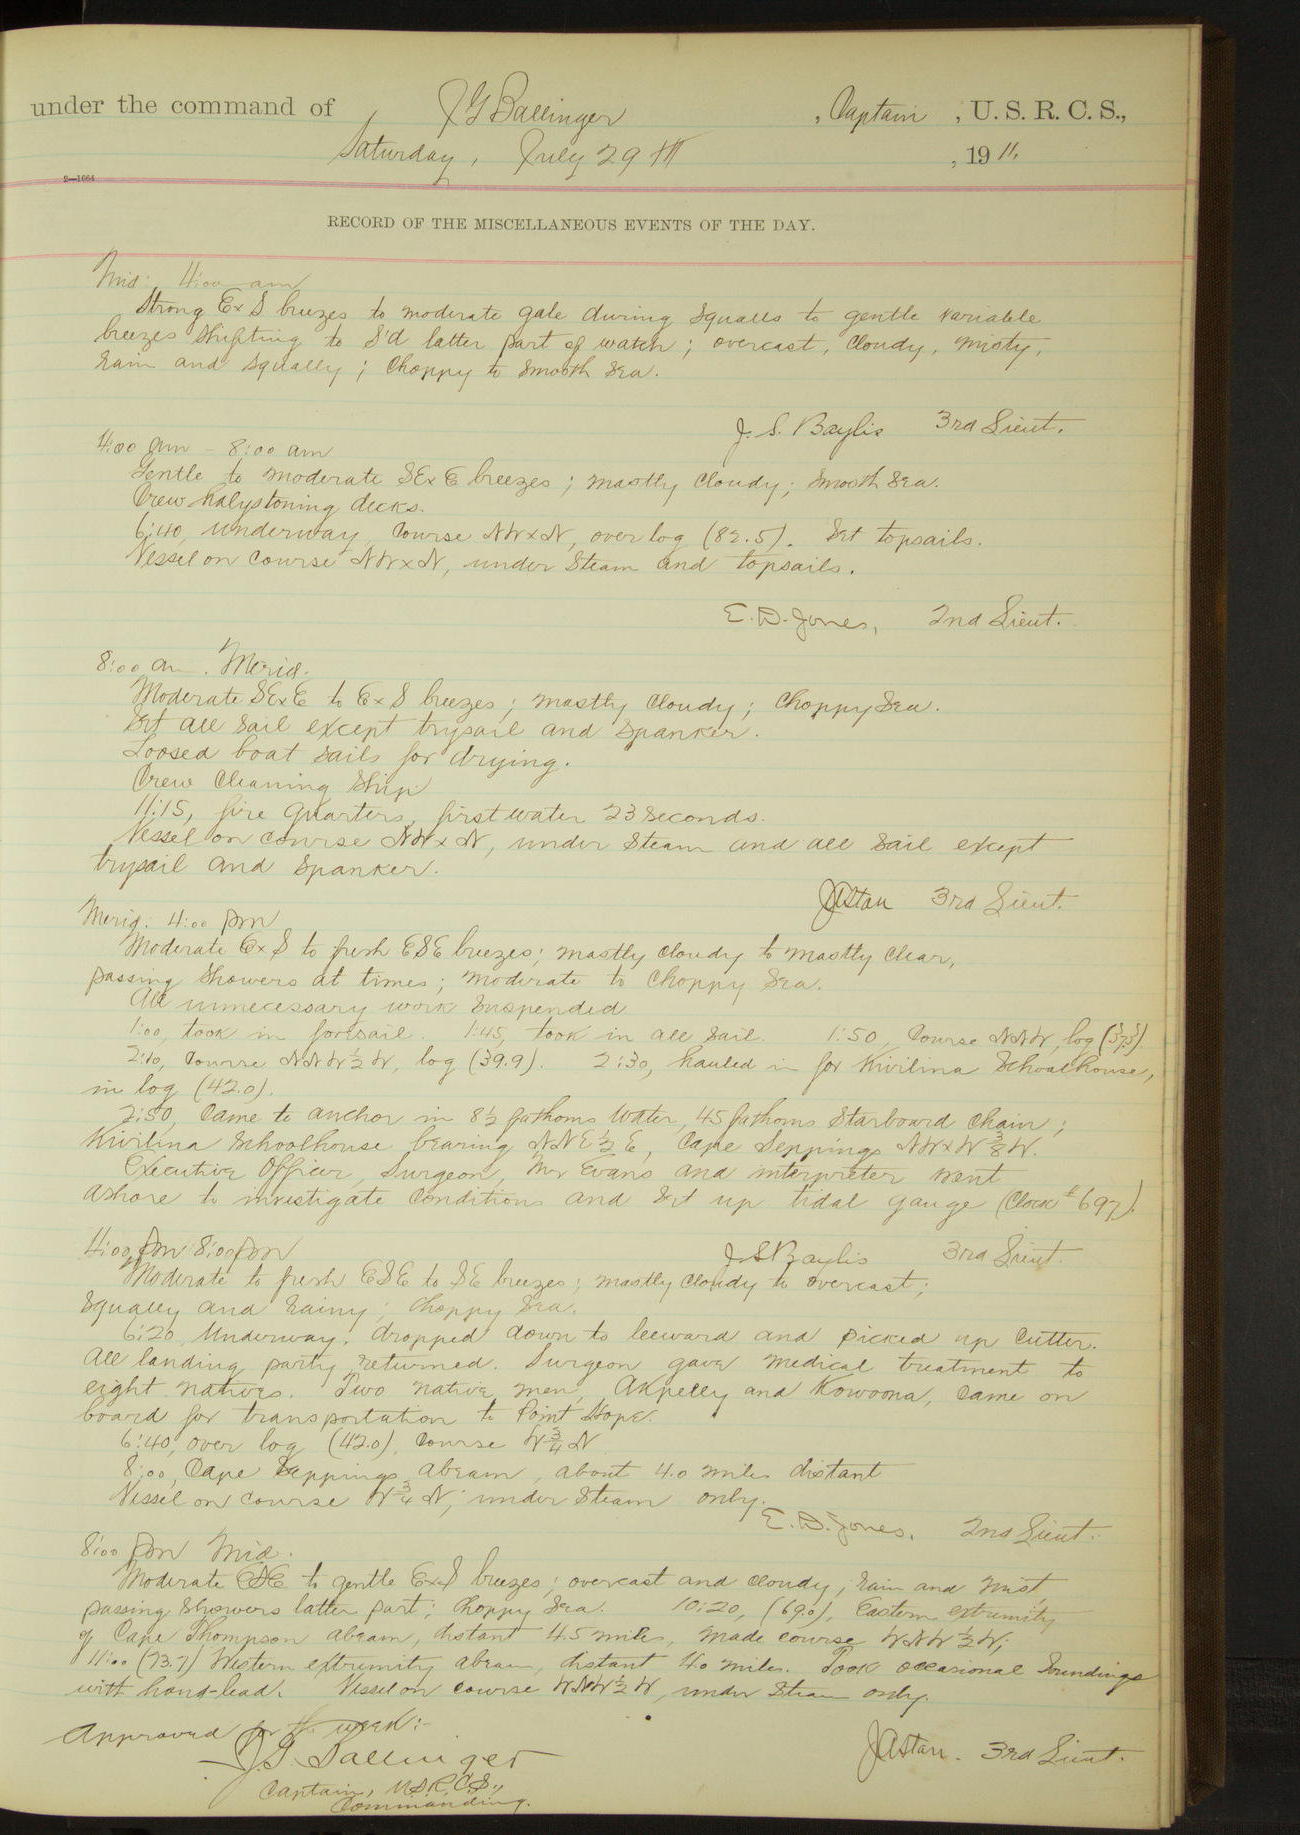 under the command of J G Ballinger, Captain, U. S. R. C. S.,
Saturday, July 29th, 1911,
2—1664
RECORD OF THE MISCELLANEOUS EVENTS OF THE DAY.
Mid: 4:00 am
Strong ExS breezes to moderate gale during squalls to gentle variable
breezes shifting to S'd latter part of watch; overcast, cloudy, misty,
rain and squally; choppy to smooth sea.
J. S. Baylis 3rd Lieut.
4:00 am - 8:00 am
Gentle to moderate SExE breezes; mostly cloudy; smooth sea.
Crew holystoning decks.
6:40, underway, course NWxN, over log (82.5). Set topsails.
Vessel on course NWxN, under steam and topsails.
E. D. Jones, 2nd Lieut.
8:00 am. Merid.
Moderate SExE to ExS breezes; mostly cloudy; choppy sea.
Set all sail except trysail and spanker.
Loosed boat sails for drying.
Crew cleaning ship
11:15, fire quarters, first water 23 seconds.
Vessel on course NWxN, under steam and all sail except
trysail and spanker.
3rd Lieut.
Merid: 4:00 pm
Moderate ExS to fresh ESE breezes; mostly cloudy to mostly clear,
passing showers at times; moderate to choppy sea.
All unnecessary work suspended
1:00, took in foresail. 1:45, took in all sail. 1:50, course NNW, log (37.5)
2:10, course NNW½W, log (39.9). 2:30, hauled in for Kivilina Schoolhouse,
in log (42.0).
2:50, came to anchor in 8½ fathoms water, 45 fathoms starboard chain;
Kivilina Schoolhouse bearing NNE½E, Cape Seppings NWxW⅜W.
Executive Officer, Surgeon, Mr Evans and interpreter went
ashore to investigate conditions and set up tidal gauge (Clock #697).
J S Baylis 3rd Lieut.
4:00 pm 8:00 pm
Moderate to fresh ESE to SE breezes; mostly cloudy to overcast;
squally and rainy; choppy sea.
6:20, Underway, dropped down to leeward and picked up cutter.
All landing party returned. Surgeon gave medical treatment to
eight natives. Two native men, Akpelly and Kowoona, came on
board for transportation to Point Hope.
6:40, over log (42.0), course W¾N
8:00, Cape Seppings abeam, about 4.0 miles distant
Vessel on course W¾N, under steam only.
E. D. Jones, 2nd Lieut.
8:00 pm Mid.
Moderate ESE to gentle ExS breezes; overcast and cloudy, rain and mist,
passing showers latter part; choppy sea. 10:20, (69.0), Eastern extremity
of Cape Thompson abeam, distant 4.5 miles, made course WNW½W;
11:00 (73.7) Western extremity abeam, distant 4.0 miles. Took occasional soundings
with hand-lead. Vessel on course WNW½W, under steam only.
3rd Lieut.
Approved for the week:-
J. G. Ballinger
Captain, U.S.R.C.S.,
Commanding.